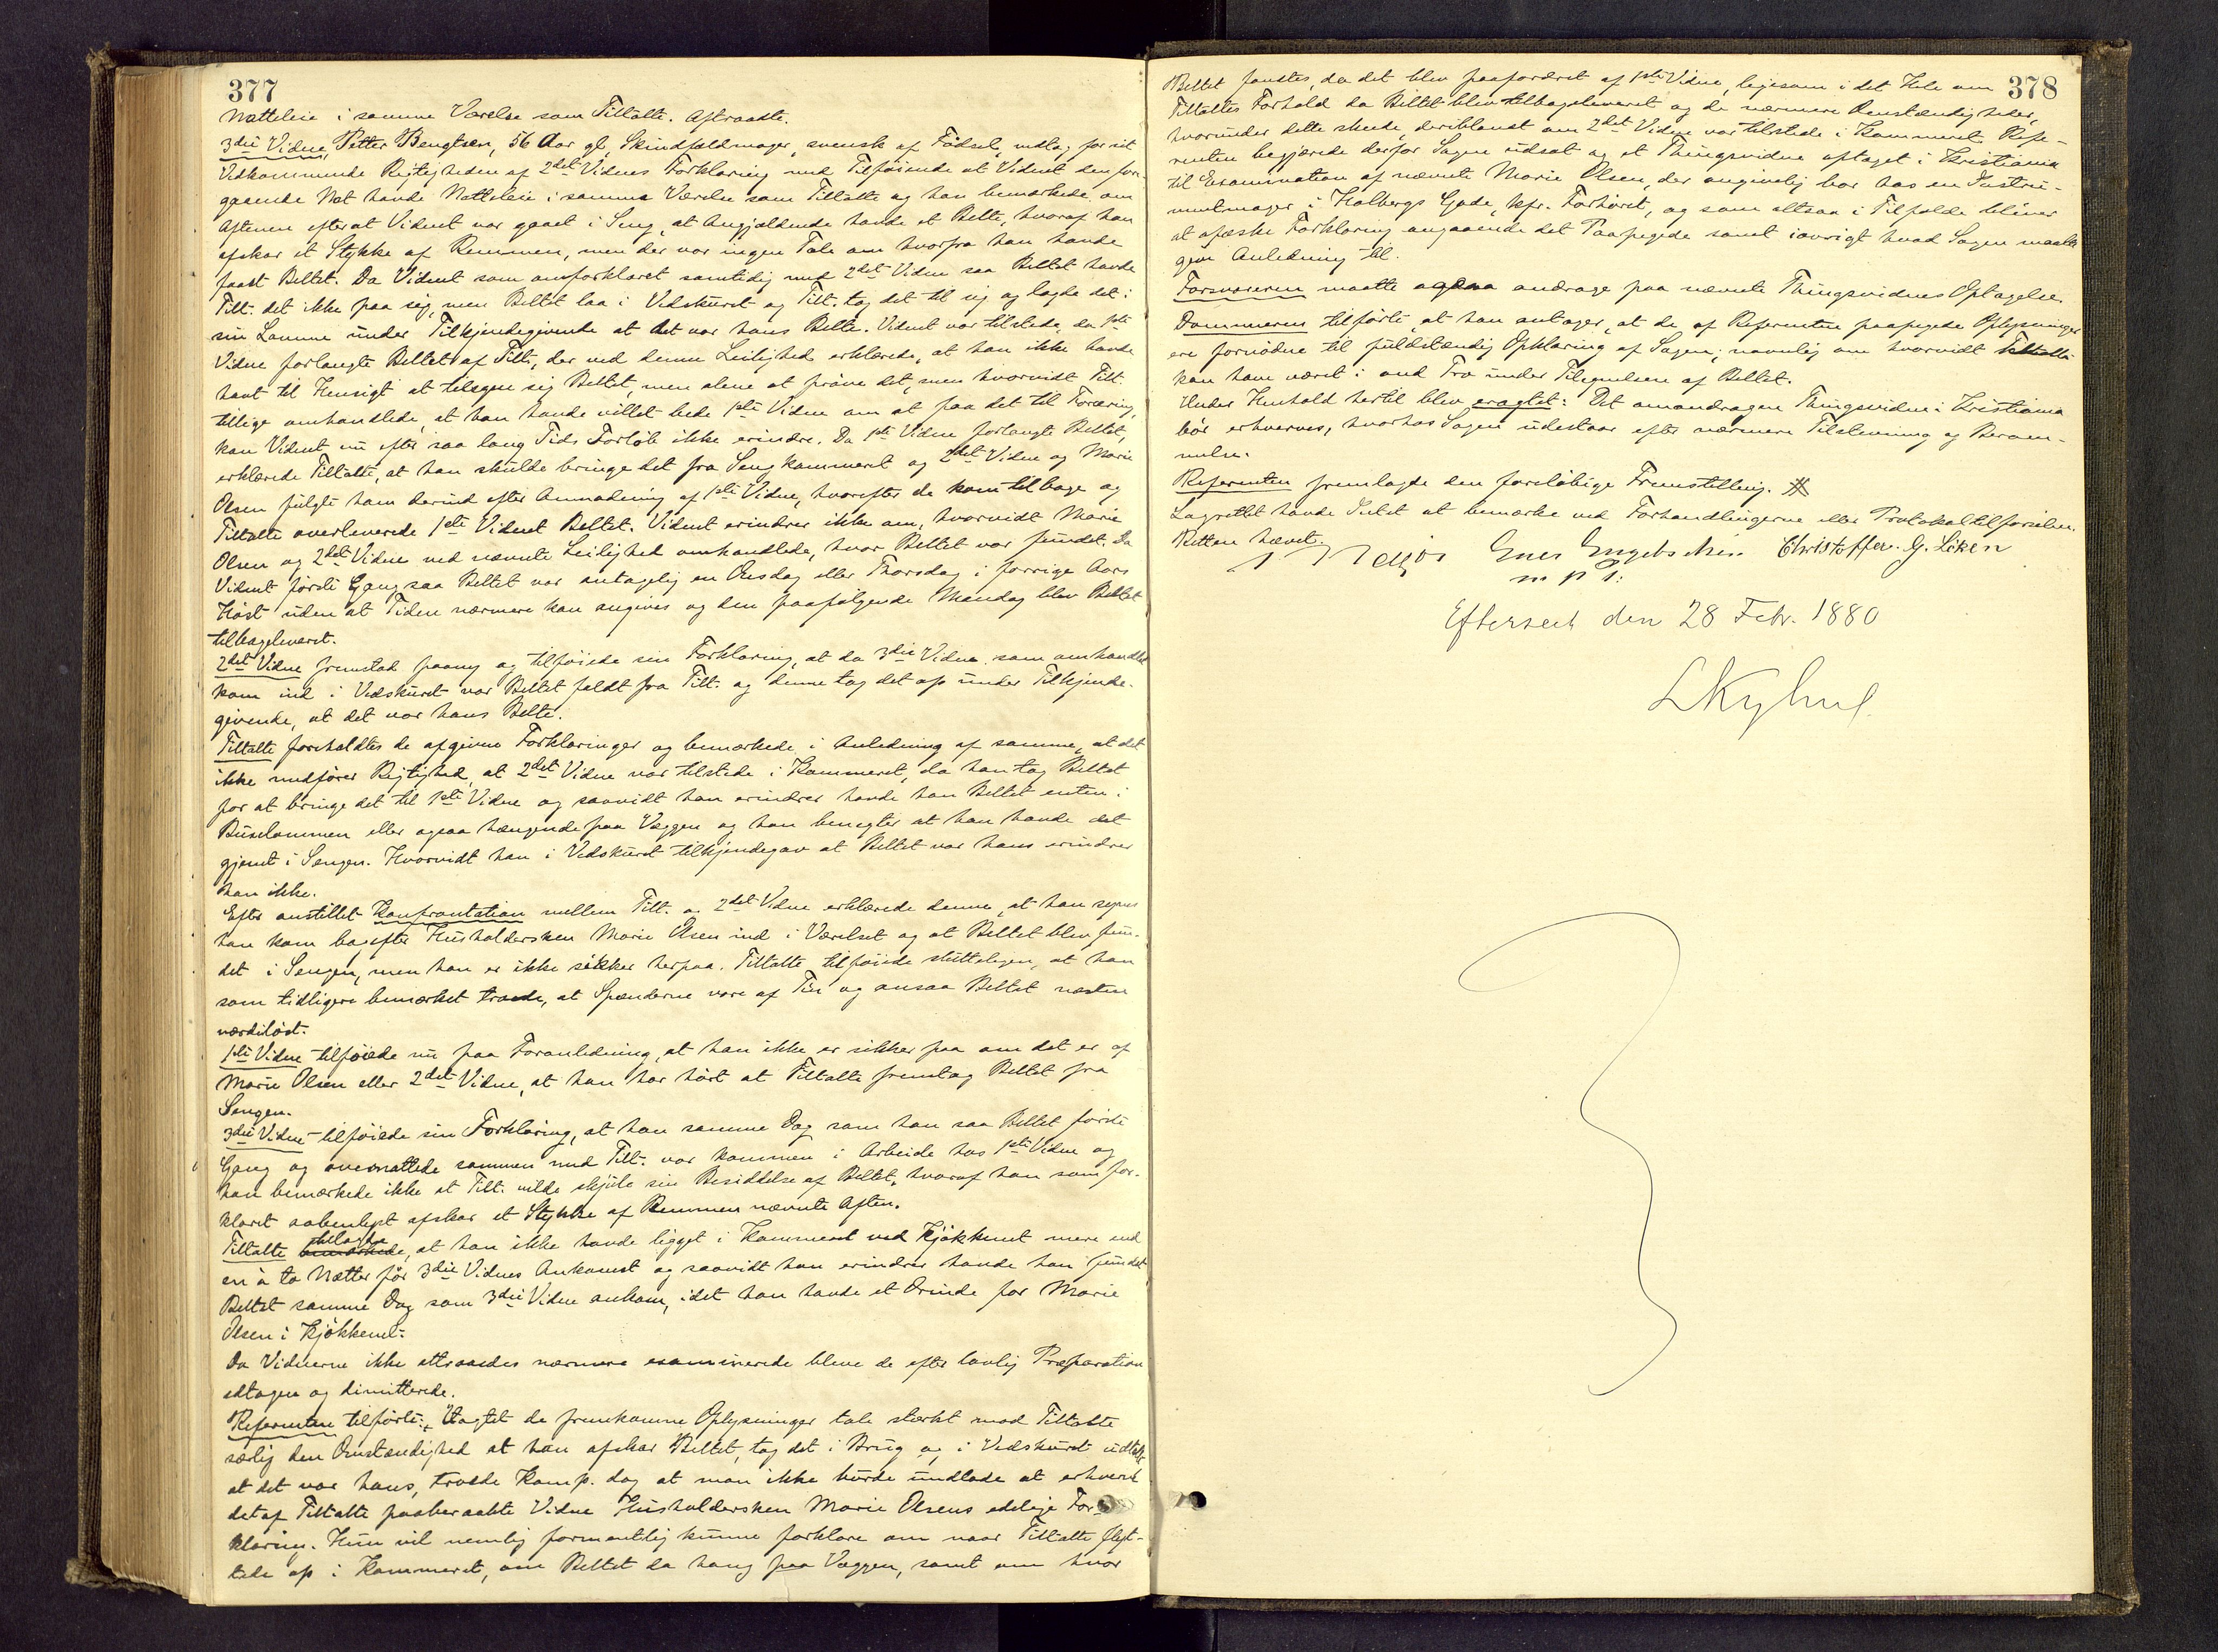 377
Natteleie i samme Værelse som Tiltalte. Aftraadte.
3die Vidne, Petter Bengtsen, 56 Aar gl, Skindfeldmager, svensk af Födsel, vedtog forsit
Vedkommende Rigtigheden af 2det Vidnes Forklaring med Tilföiende at Vidnet den fore-
gaaende Nat havde Natteleie i samme Værelse som Tiltalte og han bemærkede om
Aftenen efterat Vidnet var gaaet i Seng, at Angjældende havde et Belte, hvoraf han
afskar et Stykke af Remmen, men der var ingen Tale om hvorfra han havde
faaet Beltet. Da Vidnet som omforklaret samtidig med 2det Vidne saa Beltet havde
Tilt. det ikke paa sig, men Beltet laa i Vedskuret og Tilt. tog det til sig og lagde det i
sin Lomme under Tilkjendegivende at det var hans Belte. Vidnet var tilstede, da 1ste
Vidne forlangte Beltet af Tilt., der ved denne Leilighed erklærede, at han ikke havde
havt til Hensigt at tilegne sig Beltet, men alene at pröve det, men hvorvidt Tilt.
tillige omhandlede, at han havde villet bede 1ste Vidne om at faa det til Foræring,
kan Vidnet nu efter saa lang Tids Forlöb ikke erindre. Da 1ste Vidne forlangte Beltet,
erklærede Tiltalte, at han skulde bringe det fra Sengkammeret og 2det Vidne og Marie
Olsen fulgte ham derind efter Anmodning af 1ste Vidne, hvorefter de kom tilbage og
Tiltalte overleverede 1ste Vidnet Beltet. Vidnet erindrer ikke om, hvorvidt Marie
Olsen og 2det Vidne ved nævnte Leilighed omhandlede, hvor Beltet var fundet. Da
Vidnet förste Gang saa Beltet var antagelig en Onsdag eller Thorsdag i forrige Aars
Höst uden at Tiden nærmere kan angives og den paafölgende Mandag blev Beltet
tilbageleveret.
2det Vidne fremstod paany og tilföiede sin Forklaring, at da 3die Vidne som omhandlet
kom ind i Vedskuret var Beltet faldt fra Tilt. og denne tog det op under Tilkjende-
givende, at det var hans Belte.
Tiltalte foreholdtes de afgivne Forklaringer og bemærkede i Anledning af samme, at det
ikke medförer Rigtighed, at 2det Vidne var tilstede i Kammeret, da han tog Beltet
for at bringe det til 1ste Vidne og saavidt han erindrer havde han Beltet enten i
Buxelommen eller ogsaa hængende paa Væggen og han benegter at han havde det
gjemt i Sengen. Hvorvidt han i Vedskuret tilkjendegav at Beltet var hans erindrer
han ikke.
Efter anstillet Konfrontation mellem Tilt. og 2det Vidne erklærede denne, at han synes
han kom bagefter Husholdersken Marie Olsen ind i Værelset og at Beltet blev fun-
det i Sengen, men han er ikke sikker herpaa. Tiltalte tilföiede sluttelegen, at han
som tidligere bemærket troede, at Spænderne vare af Tin og ansaa Beltet næsten
værdilöst.
1ste Vidne tilföiede nu paa Foranledning, at han ikke er sikker paa om det er af
Marie Olsen eller 2det Vidne, at han har hört at Tiltalte fremtog Beltet fra
Sengen.
3die Vidne tilföiede sin Forklaring, at han samme Dag som han saa Beltet förste
Gang og overnattede sammen med Tilt. var kommen i Arbeide hos 1ste Vidne og
han bemærkede ikke at Tilt. vilde skjule sin Besiddelse af Beltet, hvoraf han som for-
klaret aabenlyst afskar et Stykke af Remmen nævnte Aften.
Tiltalte tillagde bemærkede, at han ikke havde ligget i Kammeret ved Kjökkenet mere end
en à to Nætter för 3die Vidnes Ankomst og saavidt han erindrer havde han fundet
Beltet samme Dag som 3die Vidne ankom, idet han havde et Ærinde for Marie
Olsen i Kjökkenet.
Da Vidnerne ikke attraaedes nærmere examinerede bleve de efter lovlig Præparation
edtagen og dimitterede.
Referenten tilförte: Uagtet de fremkomne Oplysninger tale stærkt mod Tiltalte
særlig den Omstændighed at han afskar Beltet, tog det i Brug og i Vedskuret udtalte
at det var hans, troede Komp. dog at man ikke burde undlade at erhverve
det af Tiltalte paaberaabte Vidne Husholdersken Marie Olsens edelige For-
klaring. Hun vil nemlig formentlig kunne forklare om naar Tiltalte flyt-
tede op i Kammeret, om Beltet da hang paa Væggen, samt om hvor
378
Beltet fandtes, da det blev paafordret af 1ste Vidne, ligesom i det Hele om
Tiltaltes Forhold da Beltet blev tilbageleveret og de nærmere Omstændigheder,
hvorunder dette skede, deriblandt om 2det Vidne var tilstede i Kammeret. Refe-
renten begjærede derfor Sagen udsat og et Thingsvidne optaget i Kristiania
til Examination af nævnte Marie Olsen, der angivelig bor hos en Instru-
mentmager i Holbergs Gade, kfr. Forhöret, og som altsaa i Tilfælde bliver
at afæske Forklaring angaaende det Paapegede samt iövrigt hvad Sagen maatte
give Anledning til.
Forsvareren maatte ogsaa andrage paa nævnte Thingsvidnes Optagelse.
Dommeren tilförte, at han antager, at de af Referenten paapegede Oplysninger
ere fornödne til fuldstændig Opklaring af Sagen; navnlig om hvorvidt Tiltalte
kan have været i ond Tro under Tilegnelsen af Beltet.
Under Henhold hertil blev eragtet: Det omandragne Thingsvidne i Kristiania
bör erhverves, hvorhos Sagen udestaar efter nærmere Tilstevning og Beram-
melse.
Referenten fremlagde den foreløbige Fremstilling.
Lagrettet havde Intet at bemærke ved Forhandlingerne eller Protokoltilförselen.
Retten hævet.
Enes Engebretsen Christoffer. G. Liken
m p P.
Efterseet den 28 Febr. 1880